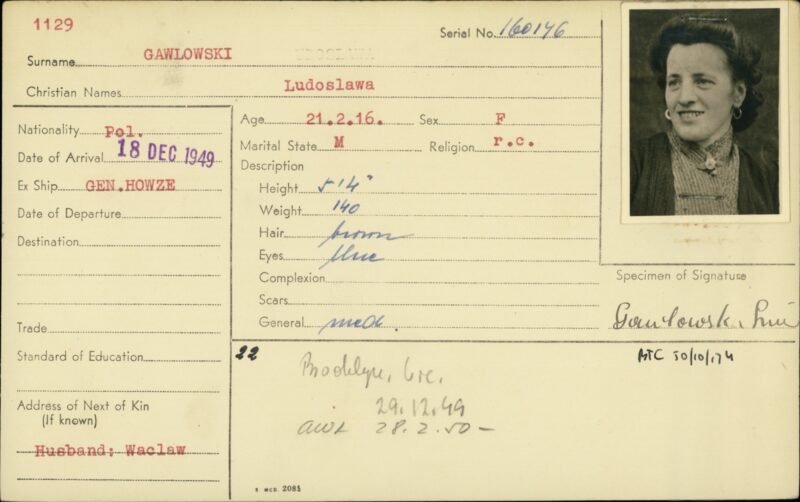 1129
Serial No. 160176
Surname GAWLOWSKI
Christian Names Ludoslawa
Nationality Pol.
Date of Arrival 18 DEC 1949
Ex Ship GEN.HOWZE
Date of Departure
Destination
Trade
Standard of Education
Address of Next of Kin
(If known)
Husband: Waclaw
Age 21.2.16. Sex F
Marital State M Religion r.c.
Description
Height 5'4"
Weight 140
Hair brown
Eyes blue
Complexion
Scars
General med.
Specimen of Signature
Gawlowska
22
Brooklyn, Vic.
29.12.49
AWL 28.2.50-
50/10/174
S MCD. 2085